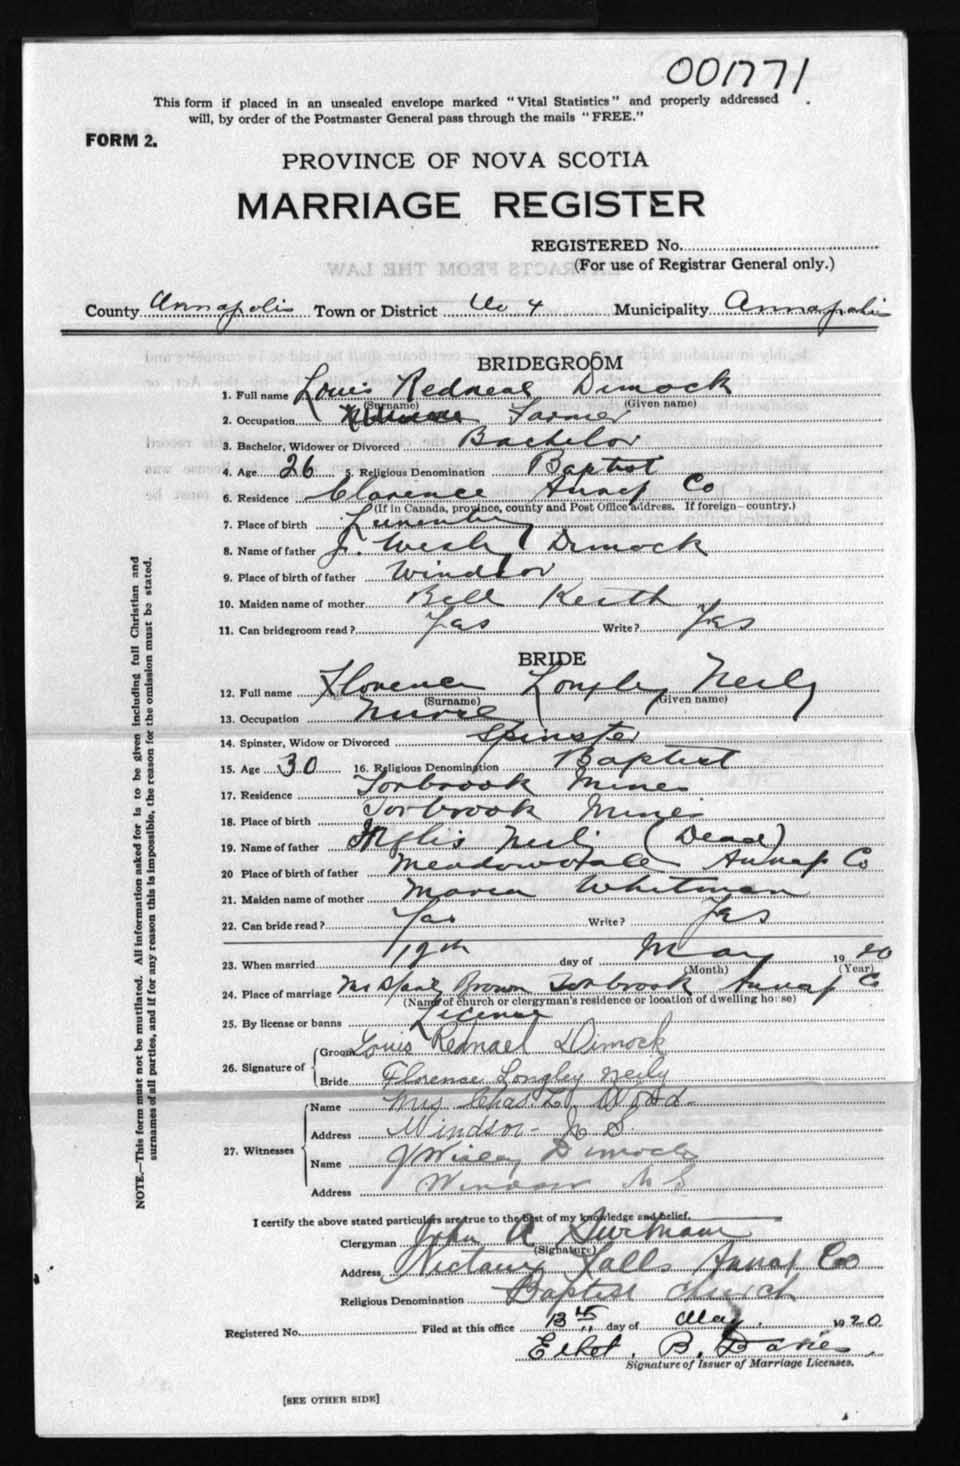 001771
This form if placed in an unsealed envelope marked "Vital Statistics" and properly addressed
will, by order of the Postmaster General pass through the mails "FREE."
FORM 2.
PROVINCE OF NOVA SCOTIA
MARRIAGE REGISTER
REGISTERED No.
(For use of Registrar General only.)
County Annapolis Town or District No 4 Municipality Annapolis
BRIDEGROOM
1. Full name Louis Redneal Dimock
(Surname) (Given name)
2. Occupation Farmer
3. Bachelor, Widower or Divorced Bachelor
4. Age 26 5. Religious Denomination Baptist
6. Residence Clarence Annap Co
(If in Canada, province, county and Post Office address. If foreign—country.)
7. Place of birth Lunenburg
8. Name of father J. Wesley Dimock
9. Place of birth of father Windsor
10. Maiden name of mother Bell Keith
11. Can bridegroom read? Yas Write? Yes
BRIDE
12. Full name Florence Longley Neily
(Surname) (Given name)
13. Occupation Nurse
14. Spinster, Widow or Divorced Spinster
15. Age 30 16. Religious Denomination Baptist
17. Residence Torbrook Mines
18. Place of birth Torbrook Mines
19. Name of father Neily (Dead)
20 Place of birth of father Meadowvale Annap Co
21. Maiden name of mother Whitman
22. Can bride read? Yas Write? Yes
23. When married 19th day of May 1920
(Month) (Year)
24. Place of marriage Brown Torbrook Annap Co
(Name of church or clergyman's residence or location of dwelling house)
25. By license or banns License
26. Signature of
Groom Louis Rednael Dimock
Bride Florence Longley Neily
27. Witnesses
Name Mrs Chas. L. Wood
Address Windsor N S.
Name J Wesley Dimock
Address Windsor N S
I certify the above stated particulars are true to the best of my knowledge and belief.
Clergyman John A
(Signature)
Address Nictaux Falls Annap Co
Religious Denomination Baptist Church
Registered No. Filed at this office 13th day of May 1920
B. Davies
Signature of Issuer of Marriage Licenses.
[SEE OTHER SIDE]
NOTE.—This form must not be mutilated. All information asked for is to be given including full Christian and
surnames of all parties, and if for any reason this is impossible, the reason for the omission must be stated.